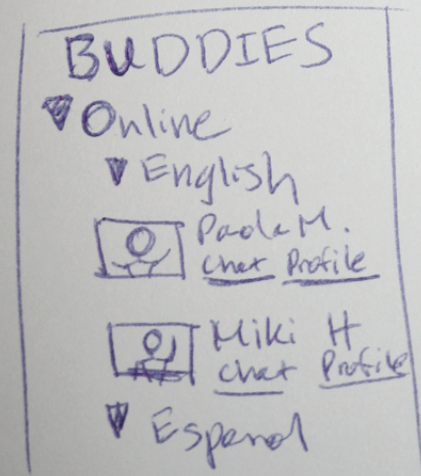 BUDDIES
Online
English
Paola M.
Chat Profile
Miki H
Chat Profile
Espanol